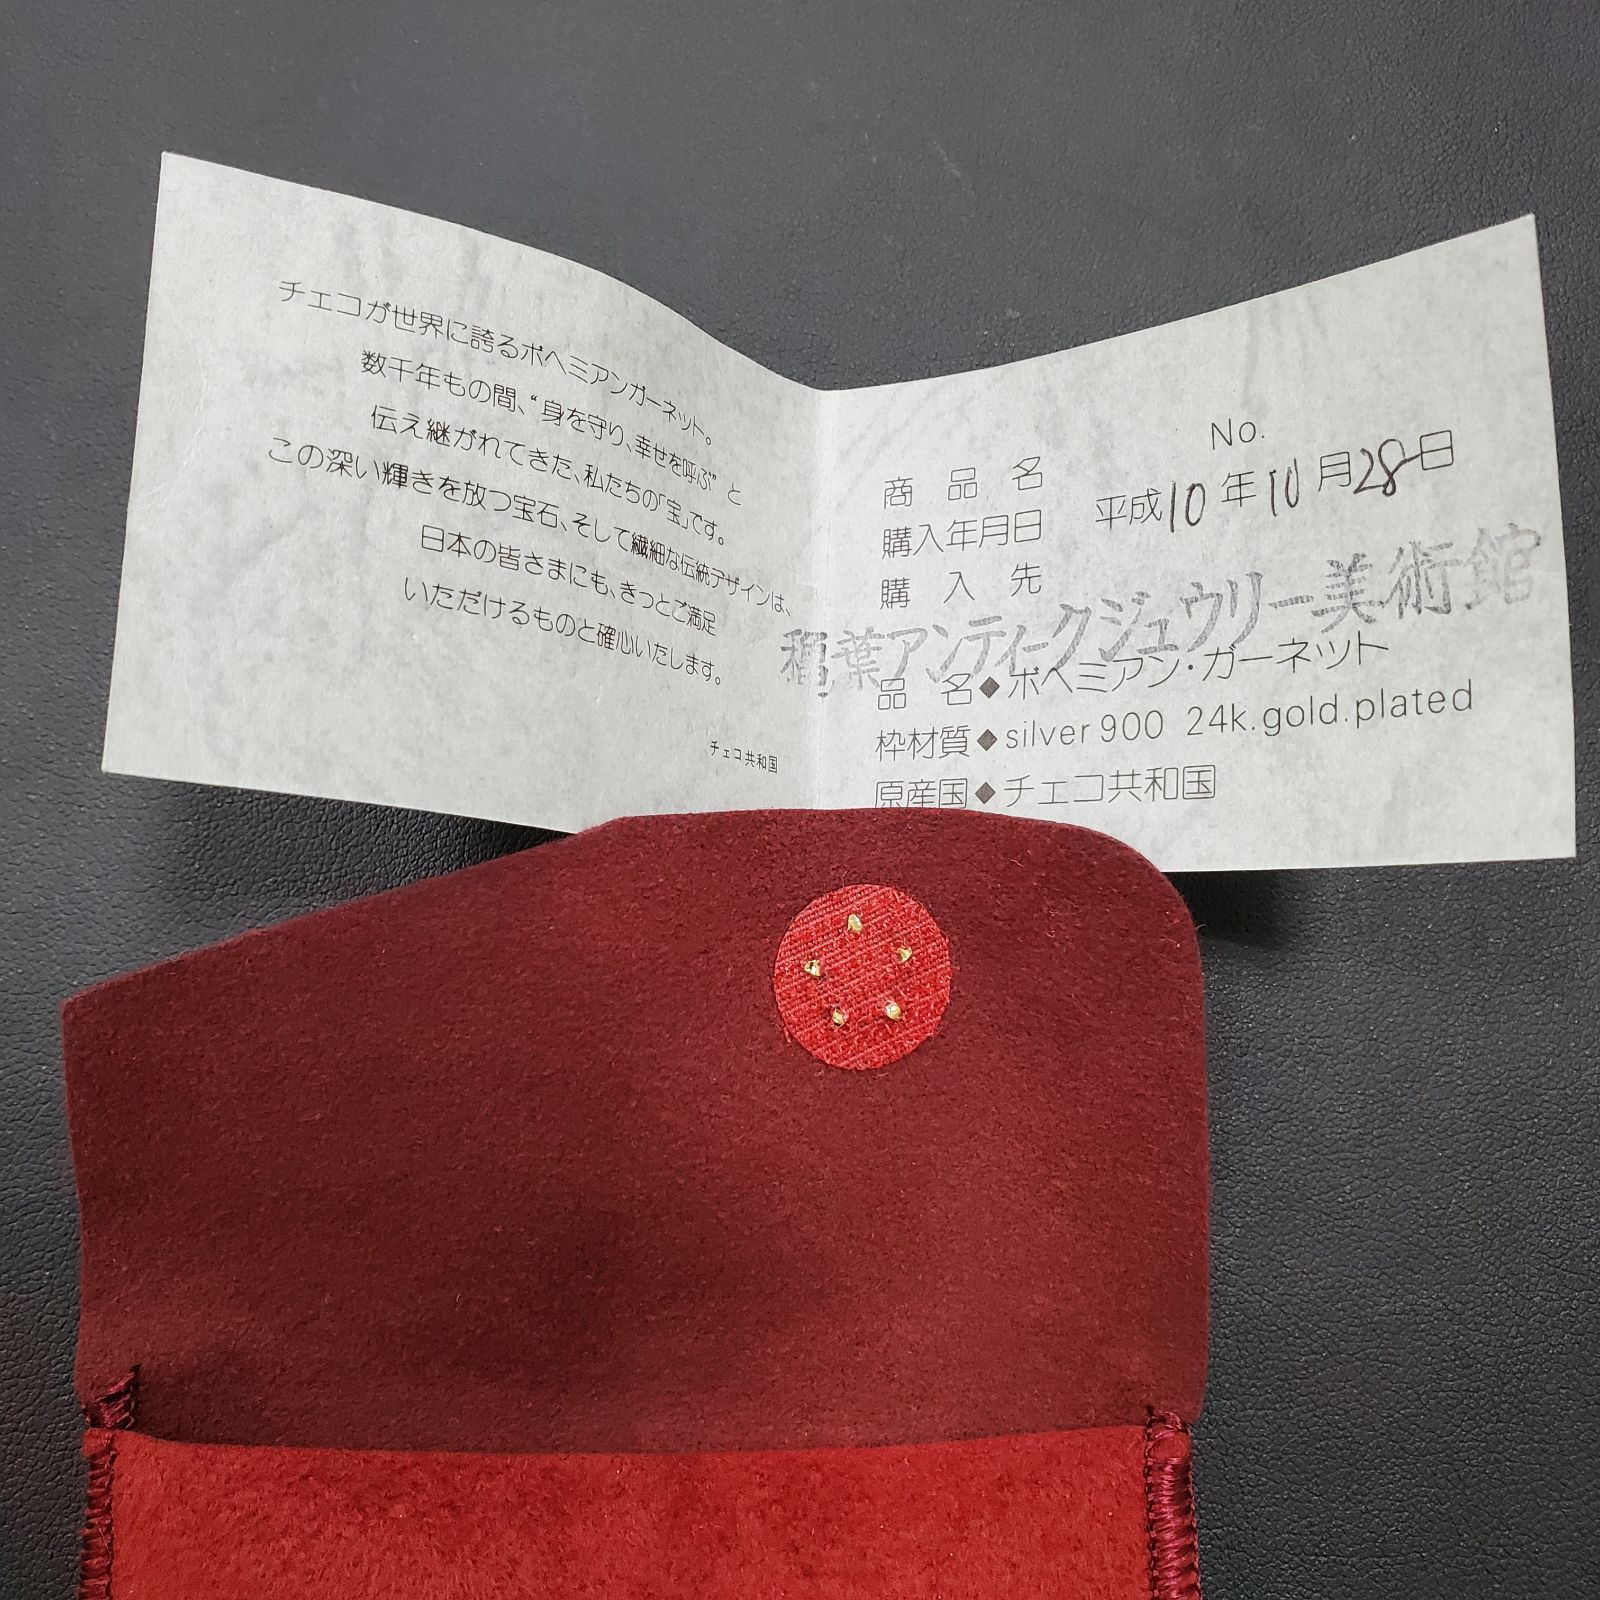 チェコが世界に誇るボヘミアンガーネット。
数千年もの間、“身を守り、幸せを呼ぶ”と
伝え継がれてきた、私たちの「宝」です。
この深い輝きを放つ宝石、そして繊細な伝統デザインは、
日本の皆さまにも、きっとご満足
いただけるものと確心いたします。
チェコ共和国
No.
商品名
購入年月日 平成10年10月28日
購入先
稲葉アンティークジュウリー美術館
品名◆ボヘミアン・ガーネット
枠材質◆silver 900 24k.gold.plated
原産国◆チェコ共和国